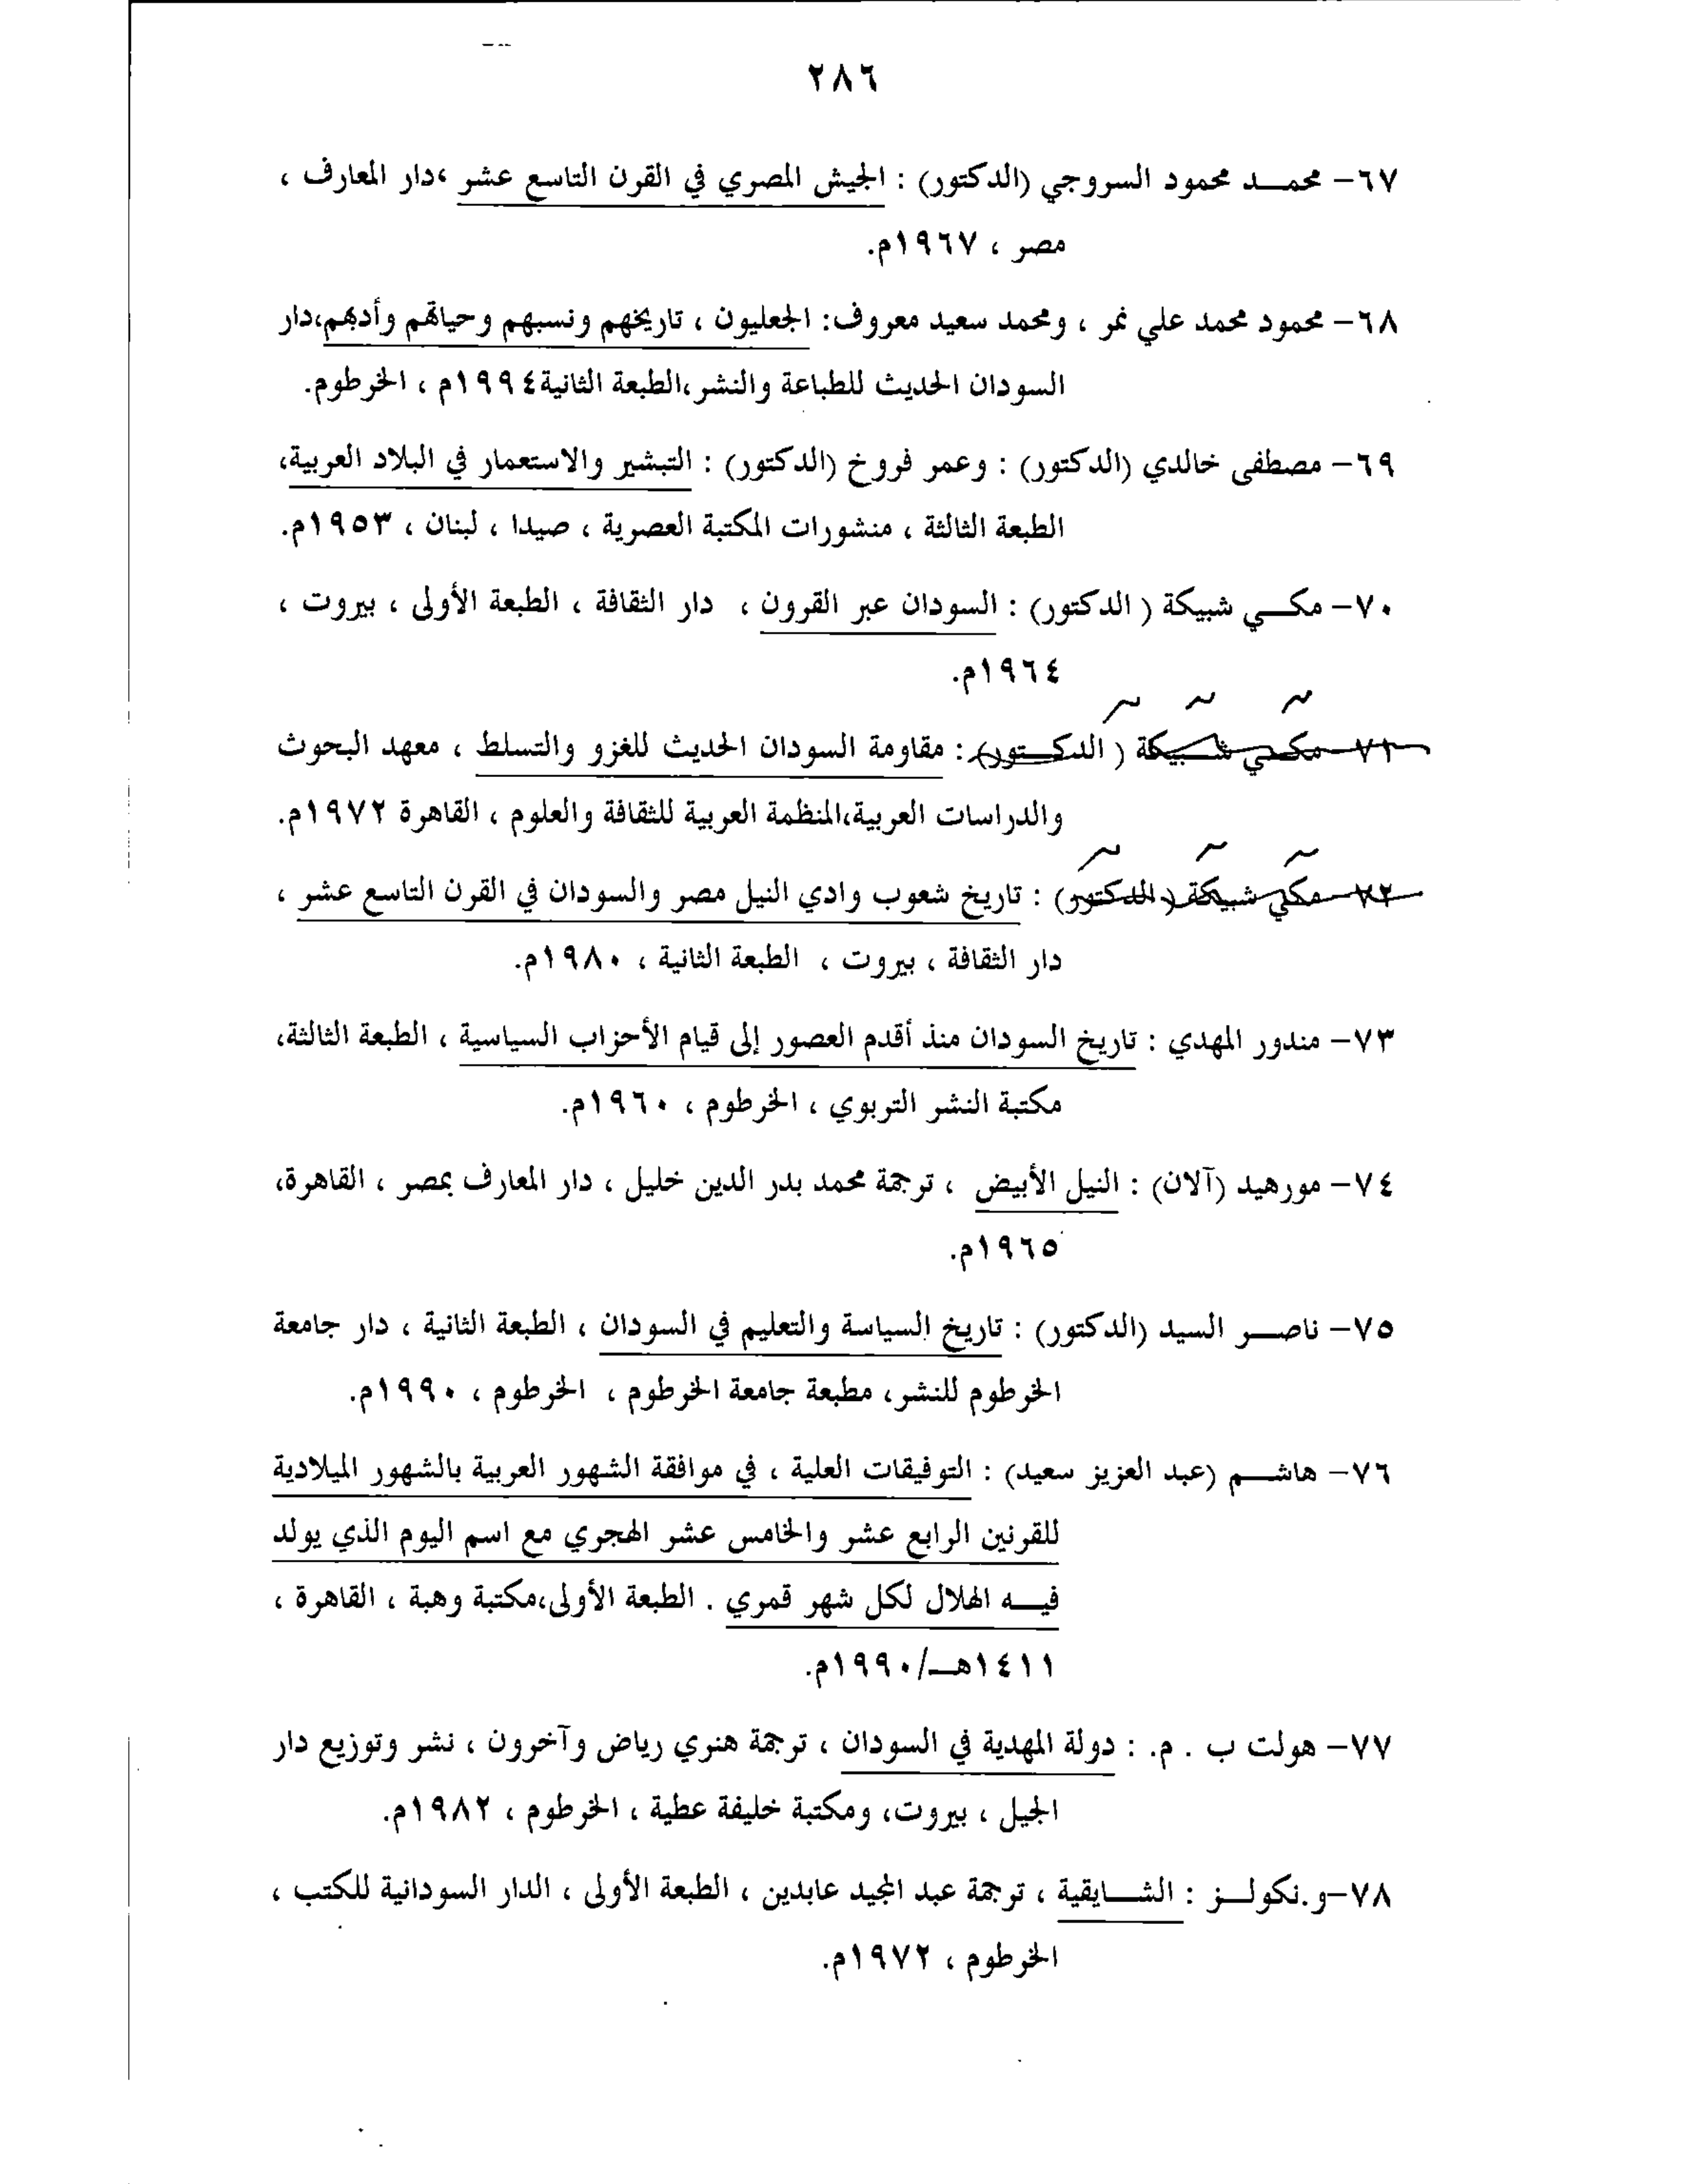 ٢٨٦
٦٧- محمـــد محمود السروجي (الدكتور) : الجيش المصري في القرن التاسع عشر ،دار المعارف ،
مصر ، ١٩٦٧م.
٦٨- محمود محمد علي نمر ، ومحمد سعيد معروف: الجعليون ، تاريخهم ونسبهم وحياتهم وأدبهم،دار
السودان الحديث للطباعة والنشر،الطبعة الثانية١٩٩٤م ، الخرطوم.
٦٩- مصطفى خالدي (الدكتور) : وعمر فروخ (الدكتور) : التبشير والاستعمار في البلاد العربية،
الطبعة الثالثة ، منشورات المكتبة العصرية ، صيدا ، لبنان ، ١٩٥٣م.
٧٠- مكـــي شبيكة ( الدكتور) : السودان عبر القرون ، دار الثقافة ، الطبعة الأولى ، بيروت ،
١٩٦٤م.
٧١- مكـــي شـــبيكة ( الدكـــتور) : مقاومة السودان الحديث للغزو والتسلط ، معهد البحوث
والدراسات العربية،المنظمة العربية للثقافة والعلوم ، القاهرة ١٩٧٢م.
٧٢- مكي شبيكة ( الدكتور) : تاريخ شعوب وادي النيل مصر والسودان في القرن التاسع عشر ،
دار الثقافة ، بيروت ، الطبعة الثانية ، ١٩٨٠م.
٧٣- مندور المهدي : تاريخ السودان منذ أقدم العصور إلى قيام الأحزاب السياسية ، الطبعة الثالثة،
مكتبة النشر التربوي ، الخرطوم ، ١٩٦٠م.
٧٤- مورهيد (آلان) : النيل الأبيض ، ترجمة محمد بدر الدين خليل ، دار المعارف بمصر ، القاهرة،
١٩٦٥م.
٧٥- ناصـــر السيد (الدكتور) : تاريخ السياسة والتعليم في السودان ، الطبعة الثانية ، دار جامعة
الخرطوم للنشر، مطبعة جامعة الخرطوم ، الخرطوم ، ١٩٩٠م.
٧٦- هاشـــم (عبد العزيز سعيد) : التوفيقات العلية ، في موافقة الشهور العربية بالشهور الميلادية
للقرنين الرابع عشر والخامس عشر الهجري مع اسم اليوم الذي يولد
فيـــه الهلال لكل شهر قمري . الطبعة الأولى،مكتبة وهبة ، القاهرة ،
١٤١١هـــ/١٩٩٠م.
٧٧- هولت ب . م. : دولة المهدية في السودان ، ترجمة هنري رياض وآخرون ، نشر وتوزيع دار
الجيل ، بيروت، ومكتبة خليفة عطية ، الخرطوم ، ١٩٨٢م.
٧٨-و.نكولـــز : الشـــايقية ، ترجمة عبد المجيد عابدين ، الطبعة الأولى ، الدار السودانية للكتب ،
الخرطوم ، ١٩٧٢م.